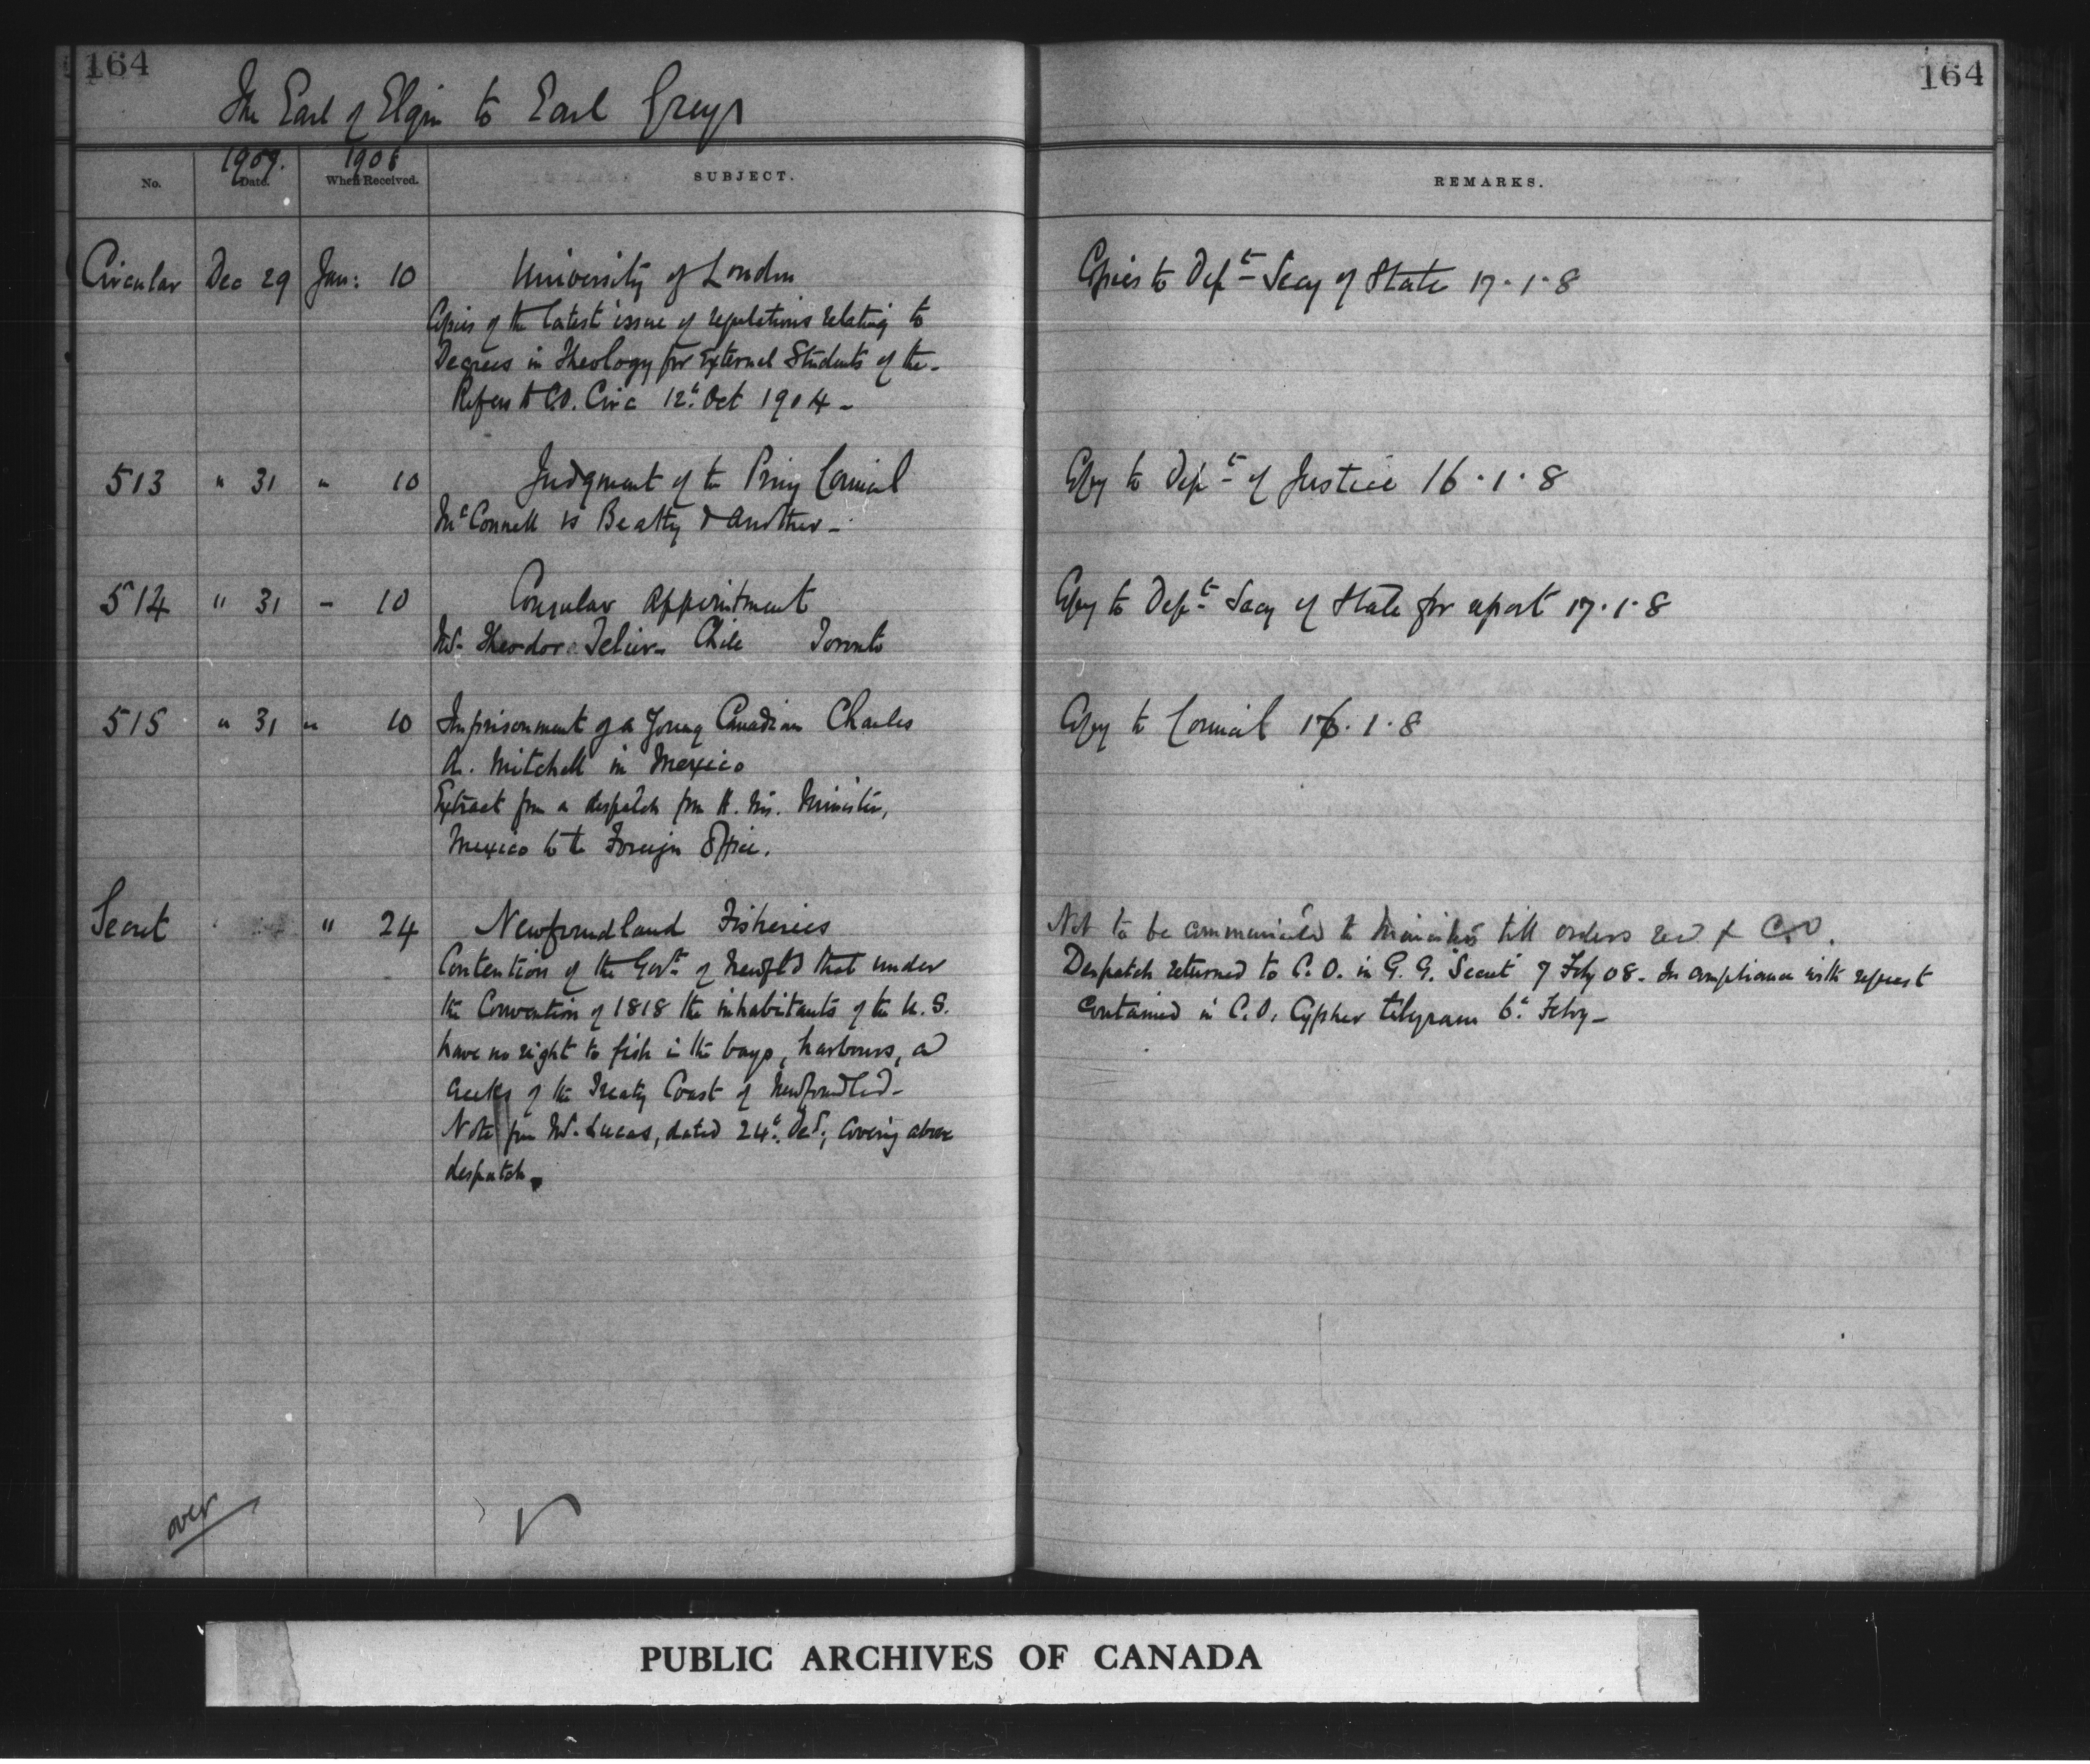 164
164
The Earl of Elgin to Earl Grey
1907. 1908
No. Date. When Received. SUBJECT. REMARKS.
Circular Dec 29 Jan: 10 University of London Copies to Dept Secy of State 17.1.8
Copies of the latest issue of regulations relating to
Degrees in Theology for External Students of the -
Refers to C.O. Circ 12th Oct 1904 -
513 " 31 " 10 Judgment of the Privy Council Copy to Dept of Justice 16.1.8
McConnell vs Beatty & Another -
514 " 31 - 10 Consular Appointment Copy to Dept Secy of State for report 17.1.8
Mr. Theodore Chile Toronto
515 " 31 " 10 Imprisonment of a Young Canadian Charles Copy to Council 1.8
A. Mitchell in Mexico
Extract from a despatch from H. M's. Minister,
Mexico to the Foreign Office.
Secret " 24 Newfoundland Fisheries Not to be communicated to Ministers till orders recd f C.O.
Contention of the Govt of Newfld that under Despatch returned to C.O. in G.G. Secret 7 Feby 08 - In compliance with request
the Convention of 1818 the inhabitants of the U.S. contained in C.O. Cypher telegram 6th Feby -
have no right to fish in the bays, harbours, and
creeks of the Treaty Coast of Newfoundland -
Note from Mr. Lucas, dated 24th Decr, covering above
despatch.
over
PUBLIC ARCHIVES OF CANADA